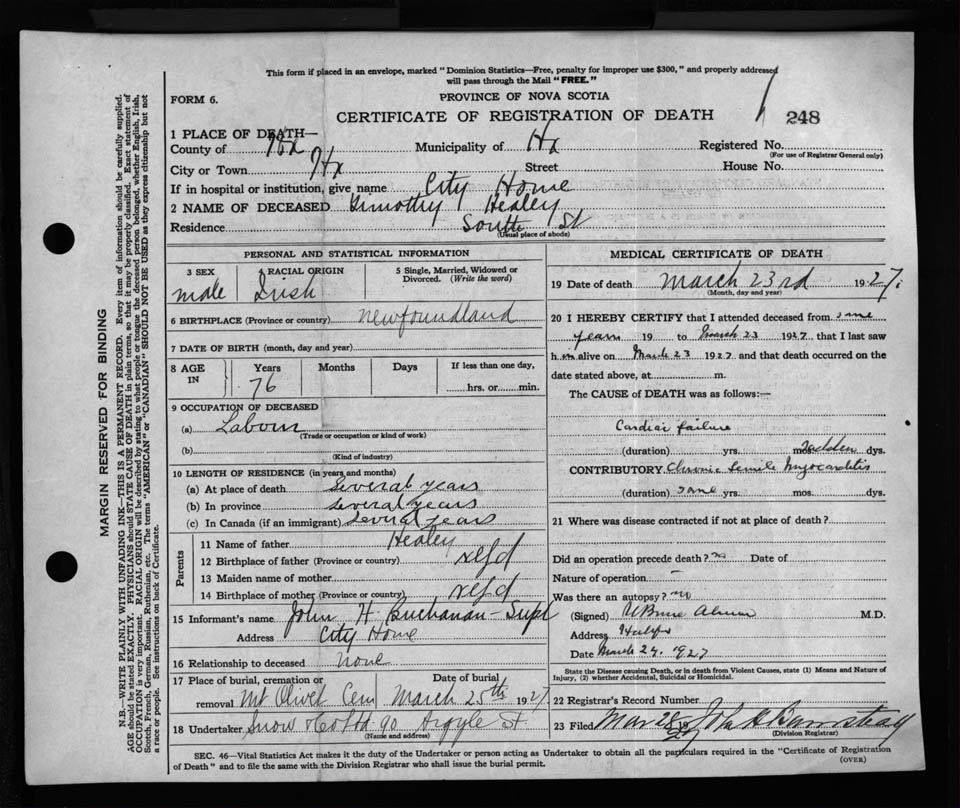 This form if placed in an envelope, marked "Dominion Statistics—Free, penalty for improper use $300," and properly addressed
will pass through the Mail "FREE."
FORM 6.
PROVINCE OF NOVA SCOTIA
CERTIFICATE OF REGISTRATION OF DEATH
248
1 PLACE OF DEATH—
County of Hx Municipality of Hx Registered No.
(For use of Registrar General only)
City or Town Hx Street House No.
If in hospital or institution, give name City Home
2 NAME OF DECEASED Timothy Healey
Residence South St
(Usual place of abode)
PERSONAL AND STATISTICAL INFORMATION
3 SEX 4 RACIAL ORIGIN 5 Single, Married, Widowed or
Divorced. (Write the word)
male Irish
6 BIRTHPLACE (Province or country) Newfoundland
7 DATE OF BIRTH (month, day and year)
8 AGE IN Years Months Days If less than one day,
76 hrs. or min.
9 OCCUPATION OF DECEASED
(a) Labour
(Trade or occupation or kind of work)
(b)
(Kind of industry)
10 LENGTH OF RESIDENCE (in years and months)
(a) At place of death Several years
(b) In province Several years
(c) In Canada (if an immigrant) Several years
Parents
11 Name of father Healey
12 Birthplace of father (Province or country) Nfd
13 Maiden name of mother
14 Birthplace of mother (Province or country) Nfd
15 Informant's name John H Buchanan - Supt
Address City Home
16 Relationship to deceased None
17 Place of burial, cremation or Date of burial
removal Mt Olivet Cem March 25th 1927
18 Undertaker Snow & Co Ltd 90 Argyle St.
(Name and address)
MEDICAL CERTIFICATE OF DEATH
19 Date of death March 23rd 1927.
(Month, day and year)
20 I HEREBY CERTIFY that I attended deceased from some
years 19 to March 23 1927, that I last saw
him alive on March 23 1927 and that death occurred on the
date stated above, at m.
The CAUSE of DEATH was as follows:—
Cardiac failure
(duration) yrs. mos. sudden dys.
CONTRIBUTORY Chronic Senile Myocarditis
(duration) some yrs. mos. dys.
21 Where was disease contracted if not at place of death?
Did an operation precede death? no Date of
Nature of operation –
Was there an autopsy? no
(Signed) M.D.
Address Halifax
Date March 24. 1927
State the Disease causing Death, or in death from Violent Causes, state (1) Means and Nature of
Injury, (2) whether Accidental, Suicidal or Homicidal.
22 Registrar's Record Number
23 Filed Mar 28 19 John A
(Division Registrar)
SEC. 46—Vital Statistics Act makes it the duty of the Undertaker or person acting as Undertaker to obtain all the particulars required in the "Certificate of Registration
of Death" and to file the same with the Division Registrar who shall issue the burial permit.
(OVER)
MARGIN RESERVED FOR BINDING
N.B.—WRITE PLAINLY WITH UNFADING INK—THIS IS A PERMANENT RECORD. Every item of information should be carefully supplied.
AGE should be stated EXACTLY. PHYSICIANS should STATE CAUSE OF DEATH in plain terms, so that it may be properly classified. Exact statement of
OCCUPATION is very important. RACIAL ORIGIN will be described by stating to what people or tongue the deceased person belonged, whether English, Irish,
Scotch, French, German, Russian, Ruthenian, etc. The terms "AMERICAN" or "CANADIAN" SHOULD NOT BE USED as they express citizenship but not
a race or people. See instructions on back of Certificate.